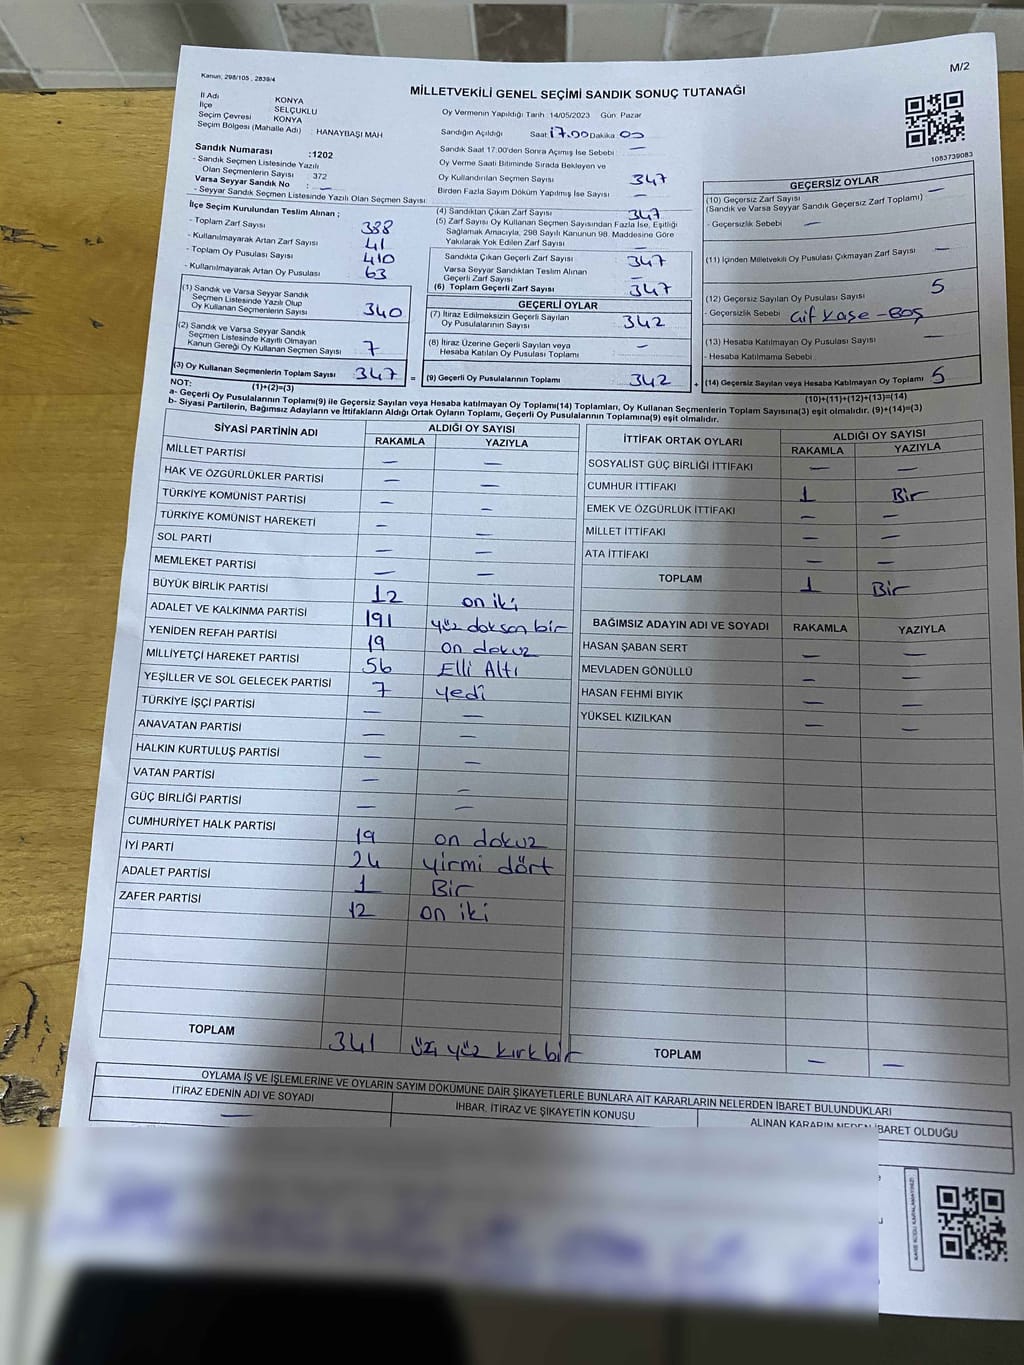 Kanun; 298/105 , 2839/4
M/2
MİLLETVEKİLİ GENEL SEÇİMİ SANDIK SONUÇ TUTANAĞI
İl Adı KONYA
İlçe SELÇUKLU
Seçim Çevresi KONYA
Seçim Bölgesi (Mahalle Adı) : HANAYBAŞI MAH
Sandık Numarası :1202
- Sandık Seçmen Listesinde Yazılı
Olan Seçmenlerin Sayısı : 372
Varsa Seyyar Sandık No : —
- Seyyar Sandık Seçmen Listesinde Yazılı Olan Seçmen Sayısı:
Oy Vermenin Yapıldığı Tarih :14/05/2023 Gün: Pazar
Sandığın Açıldığı Saat 17.00 Dakika 00
Sandık Saat 17:00'den Sonra Açımış İse Sebebi : —
Oy Verme Saati Bitiminde Sırada Bekleyen ve
Oy Kullandırılan Seçmen Sayısı 347
Birden Fazla Sayım Döküm Yapılmış İse Sayısı —
1083739083
İlçe Seçim Kurulundan Teslim Alınan ;
- Toplam Zarf Sayısı 388
- Kullanılmayarak Artan Zarf Sayısı 41
- Toplam Oy Pusulası Sayısı 410
- Kullanılmayarak Artan Oy Pusulası 63
(1) Sandık ve Varsa Seyyar Sandık
Seçmen Listesinde Yazılı Olup
Oy Kullanan Seçmenlerin Sayısı 340
(2) Sandık ve Varsa Seyyar Sandık
Seçmen Listesinde Kayıtlı Olmayan
Kanun Gereği Oy Kullanan Seçmen Sayısı 7
(3) Oy Kullanan Seçmenlerin Toplam Sayısı 347 =
(1)+(2)=(3)
(4) Sandıktan Çıkan Zarf Sayısı 347
(5) Zarf Sayısı Oy Kullanan Seçmen Sayısından Fazla İse, Eşitliği
Sağlamak Amacıyla, 298 Sayılı Kanunun 98. Maddesine Göre
Yakılarak Yok Edilen Zarf Sayısı —
Sandıkta Çıkan Geçerli Zarf Sayısı 347
Varsa Seyyar Sandıktan Teslim Alınan
Geçerli Zarf Sayısı —
(6) Toplam Geçerli Zarf Sayısı 347
GEÇERLİ OYLAR
(7) İtiraz Edilmeksizin Geçerli Sayılan
Oy Pusulalarının Sayısı 342
(8) İtiraz Üzerine Geçerli Sayılan veya
Hesaba Katılan Oy Pusulası Toplamı —
(9) Geçerli Oy Pusulalarının Toplamı 342 +
GEÇERSİZ OYLAR
(10) Geçersiz Zarf Sayısı —
(Sandık ve Varsa Seyyar Sandık Geçersiz Zarf Toplamı)
- Geçersizlik Sebebi —
(11) İçinden Milletvekili Oy Pusulası Çıkmayan Zarf Sayısı —
(12) Geçersiz Sayılan Oy Pusulası Sayısı 5
- Geçersizlik Sebebi Çift Kaşe - Boş
(13) Hesaba Katılmayan Oy Pusulası Sayısı —
- Hesaba Katılmama Sebebi
(14) Geçersiz Sayılan veya Hesaba Katılmayan Oy Toplamı 5
(10)+(11)+(12)+(13)=(14)
NOT:
a- Geçerli Oy Pusulası Toplamı(9) ile Geçersiz Sayılan veya Hesaba Katılmayan Oy Toplamı(14) Toplamları, Oy Kullanan Seçmenlerin Toplam Sayısına(3) eşit olmalıdır. (9)+(14)=(3)
b- Siyasi Partilerin, Bağımsız Adayların ve İttifakların Aldığı Ortak Oyların Toplamı, Geçerli Oy Pusulalarının Toplamına(9) eşit olmalıdır.
SİYASİ PARTİNİN ADI ALDIĞI OY SAYISI
RAKAMLA YAZIYLA
MİLLET PARTİSİ — —
HAK VE ÖZGÜRLÜKLER PARTİSİ — —
TÜRKİYE KOMÜNİST PARTİSİ — —
TÜRKİYE KOMÜNİST HAREKETİ — —
SOL PARTİ — —
MEMLEKET PARTİSİ — —
BÜYÜK BİRLİK PARTİSİ 12 on iki
ADALET VE KALKINMA PARTİSİ 191 yüz doksan bir
YENİDEN REFAH PARTİSİ 19 on dokuz
MİLLİYETÇİ HAREKET PARTİSİ 56 Elli Altı
YEŞİLLER VE SOL GELECEK PARTİSİ 7 yedi
TÜRKİYE İŞÇİ PARTİSİ — —
ANAVATAN PARTİSİ — —
HALKIN KURTULUŞ PARTİSİ — —
VATAN PARTİSİ — —
GÜÇ BİRLİĞİ PARTİSİ — —
CUMHURİYET HALK PARTİSİ 19 on dokuz
İYİ PARTİ 24 yirmi dört
ADALET PARTİSİ 1 Bir
ZAFER PARTİSİ 12 on iki
TOPLAM 341 üç yüz kırk bir
İTTİFAK ORTAK OYLARI ALDIĞI OY SAYISI
RAKAMLA YAZIYLA
SOSYALİST GÜÇ BİRLİĞİ İTTİFAKI — —
CUMHUR İTTİFAKI 1 Bir
EMEK VE ÖZGÜRLÜK İTTİFAKI — —
MİLLET İTTİFAKI — —
ATA İTTİFAKI — —
TOPLAM 1 Bir
BAĞIMSIZ ADAYIN ADI VE SOYADI RAKAMLA YAZIYLA
HASAN ŞABAN SERT — —
MEVLADEN GÖNÜLLÜ — —
HASAN FEHMİ BIYIK — —
YÜKSEL KIZILKAN — —
TOPLAM — —
OYLAMA İŞ VE İŞLEMLERİNE VE OYLARIN SAYIM DÖKÜMÜNE DAİR ŞİKAYETLERLE BUNLARA AİT KARARLARIN NELERDEN İBARET BULUNDUKLARI
İTİRAZ EDENİN ADI VE SOYADI İHBAR, İTİRAZ VE ŞİKAYETİN KONUSU ALINAN KARARIN NEDEN İBARET OLDUĞU
—